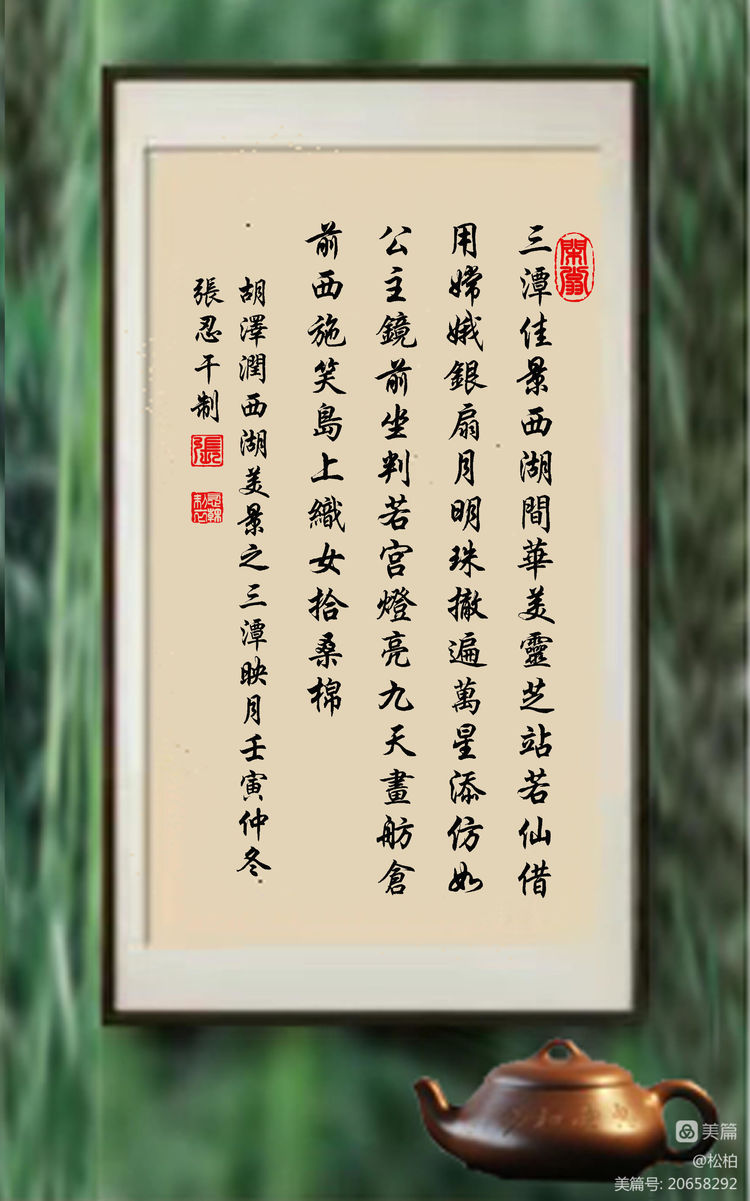 三潭佳景西湖間華美靈芝站若仙借
用嫦娥銀扇月明珠撤遍萬星添仿如
公主鏡前坐判若宮燈亮九天畫舫倉
前西施笑島上織女拾桑棉
胡澤潤西湖美景之三潭映月壬寅仲冬
張忍干制
張
美篇
@松柏
美篇号: 20658292